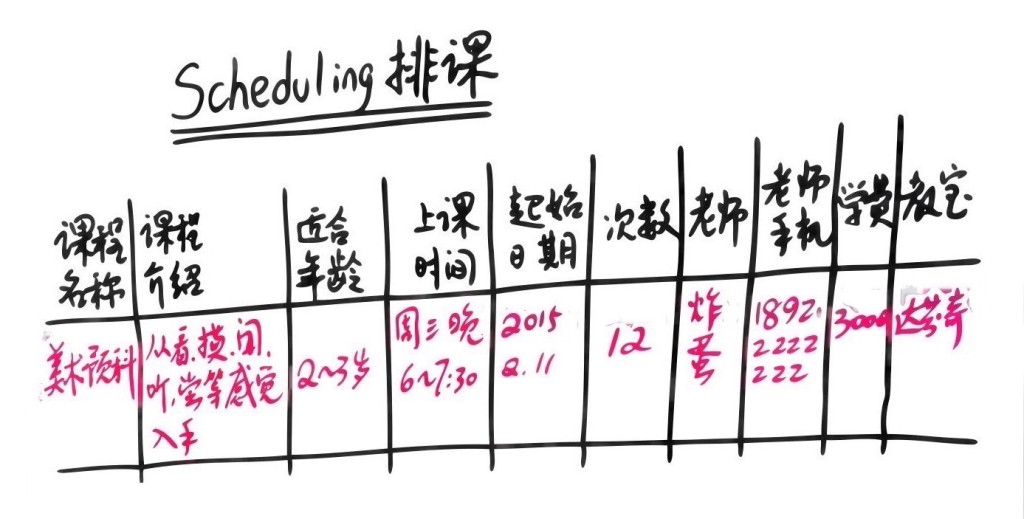 Scheduling 排课
课程名称 课程介绍 适合年龄 上课时间 起始日期 次数 老师 老师手机 学员 教室
美术预科 从看.摸.闻.听.尝等感觉入手 2~3岁 周三晚6~7:30 2015 2.11 12 炸蛋 1892 2222 222